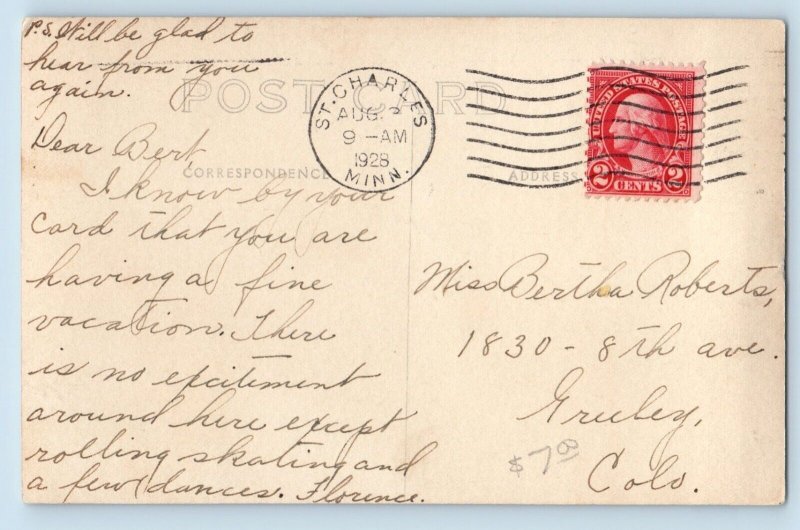 P.S. Will be glad to
hear from you
again.
POST CARD
ST. CHARLES
AUG. 2
9 - AM
1928
MINN.
UNITED STATES POSTAGE
2 CENTS 2
CORRESPONDENCE
ADDRESS
Dear Bert
I know by your
card that you are
having a fine
vacation. There
is no excitement
around here except
rolling skating and
a few dances. Florence.
Miss Bertha Roberts,
1830 - 8th ave.
Greeley,
Colo.
$7.00